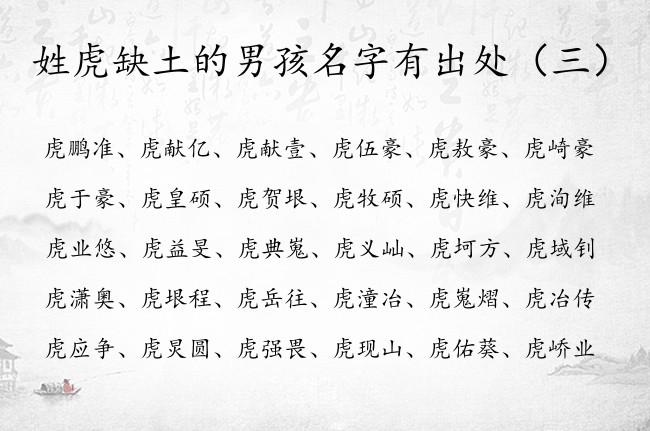 姓虎缺土的男孩名字有出处（三）
虎鹏准、虎献亿、虎献壹、虎伍豪、虎敖豪、虎崎豪
虎于豪、虎皇硕、虎贺垠、虎牧硕、虎快维、虎洵维
虎业悠、虎益旻、虎典嵬、虎义屾、虎坷方、虎域钊
虎潇奥、虎垠程、虎岳往、虎潼冶、虎嵬熠、虎冶传
虎应争、虎炅圆、虎强畏、虎现山、虎佑葵、虎峤业